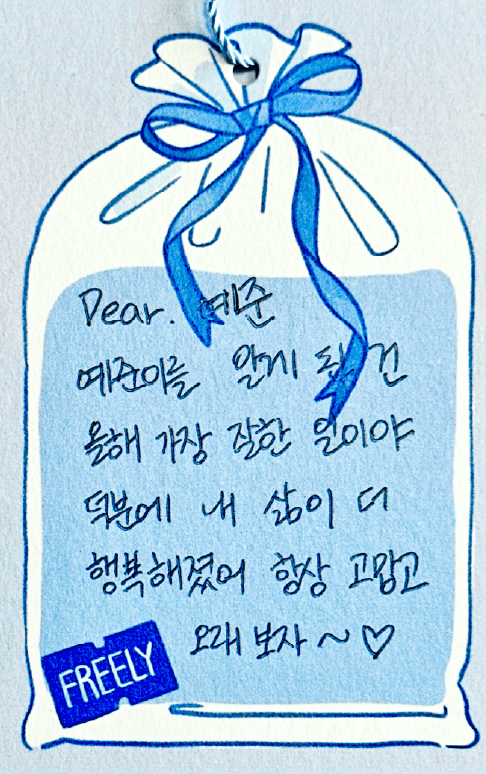 Dear. 예준
예준이를 알게 된 건
올해 가장 잘한 일이야
덕분에 내 삶이 더
행복해졌어 항상 고맙고
오래 보자 ~ ♡
FREELY